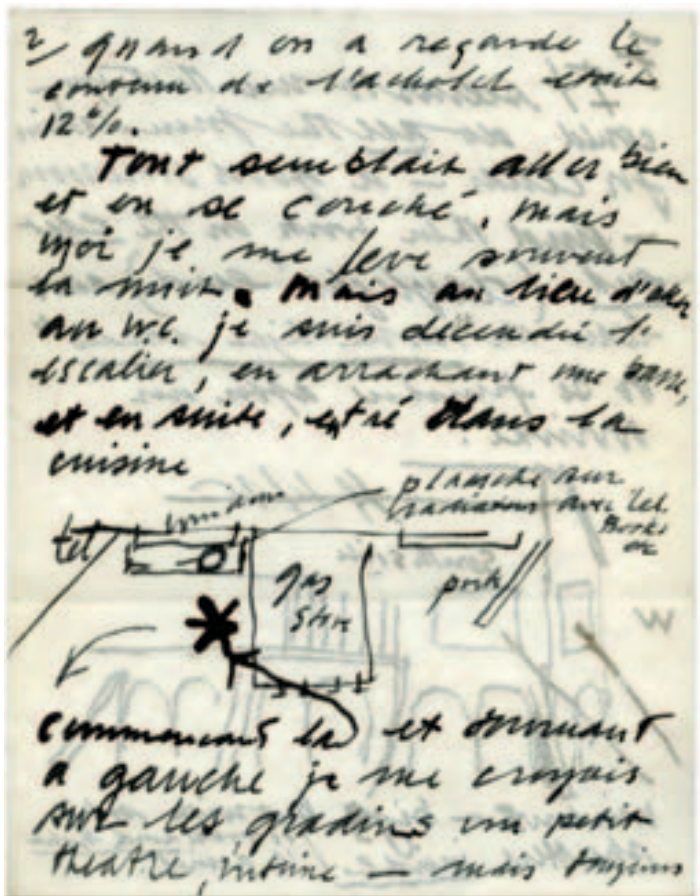 2/ quand on a regardé le
contenu de l'achohol était
12%.
Tout semblait aller bien
et on se couché, mais
moi je me leve souvent
la nuit. Mais au lieu d'aller
au W.C. je suis decendu l'
escalier, en arrachant une barre,
et en suite, entré dans la
cuisine
planche sur
window
radiateur avec tel
Books
etc
tel
gas
stove
porte
W
commencant la et tournant
a gauche je me croyais
sur les gradins un petit
theatre, intime — mais toujours